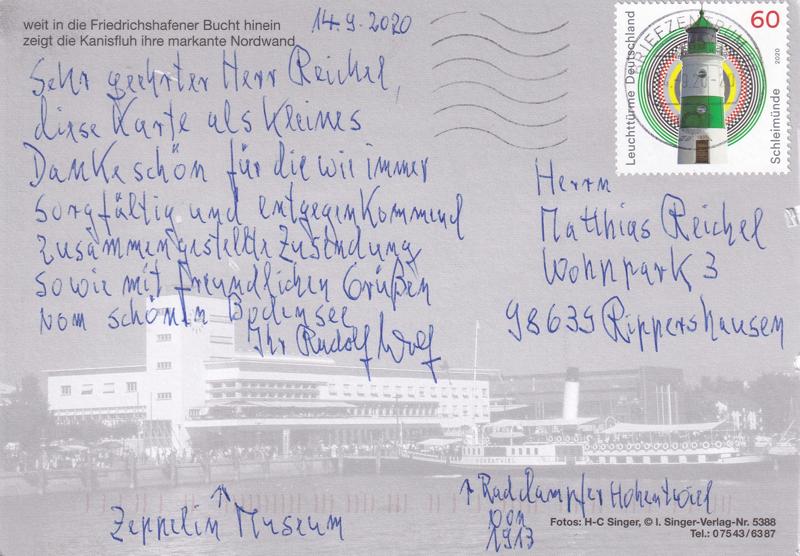 weit in die Friedrichshafener Bucht hinein
zeigt die Kanisfluh ihre markante Nordwand
14.9.2020
Sehr geehrter Herr Reichel,
diese Karte als kleines
Dankeschön für die wie immer
sorgfältig und entgegenkommend
zusammengestellte Zusendung
sowie mit freundlichen Grüßen
vom schönen Bodensee
Ihr Rudolf Wolf
BRIEFZENTRUM
60
Leuchttürme Deutschland
2020
Schleimünde
Herrn
Matthias Reichel
Wohnpark 3
98639 Rippershausen
Zeppelin Museum
Raddampfer Hohentwiel
von
1913
Fotos: H-C Singer, © I. Singer-Verlag-Nr. 5388
Tel.: 07543/6387